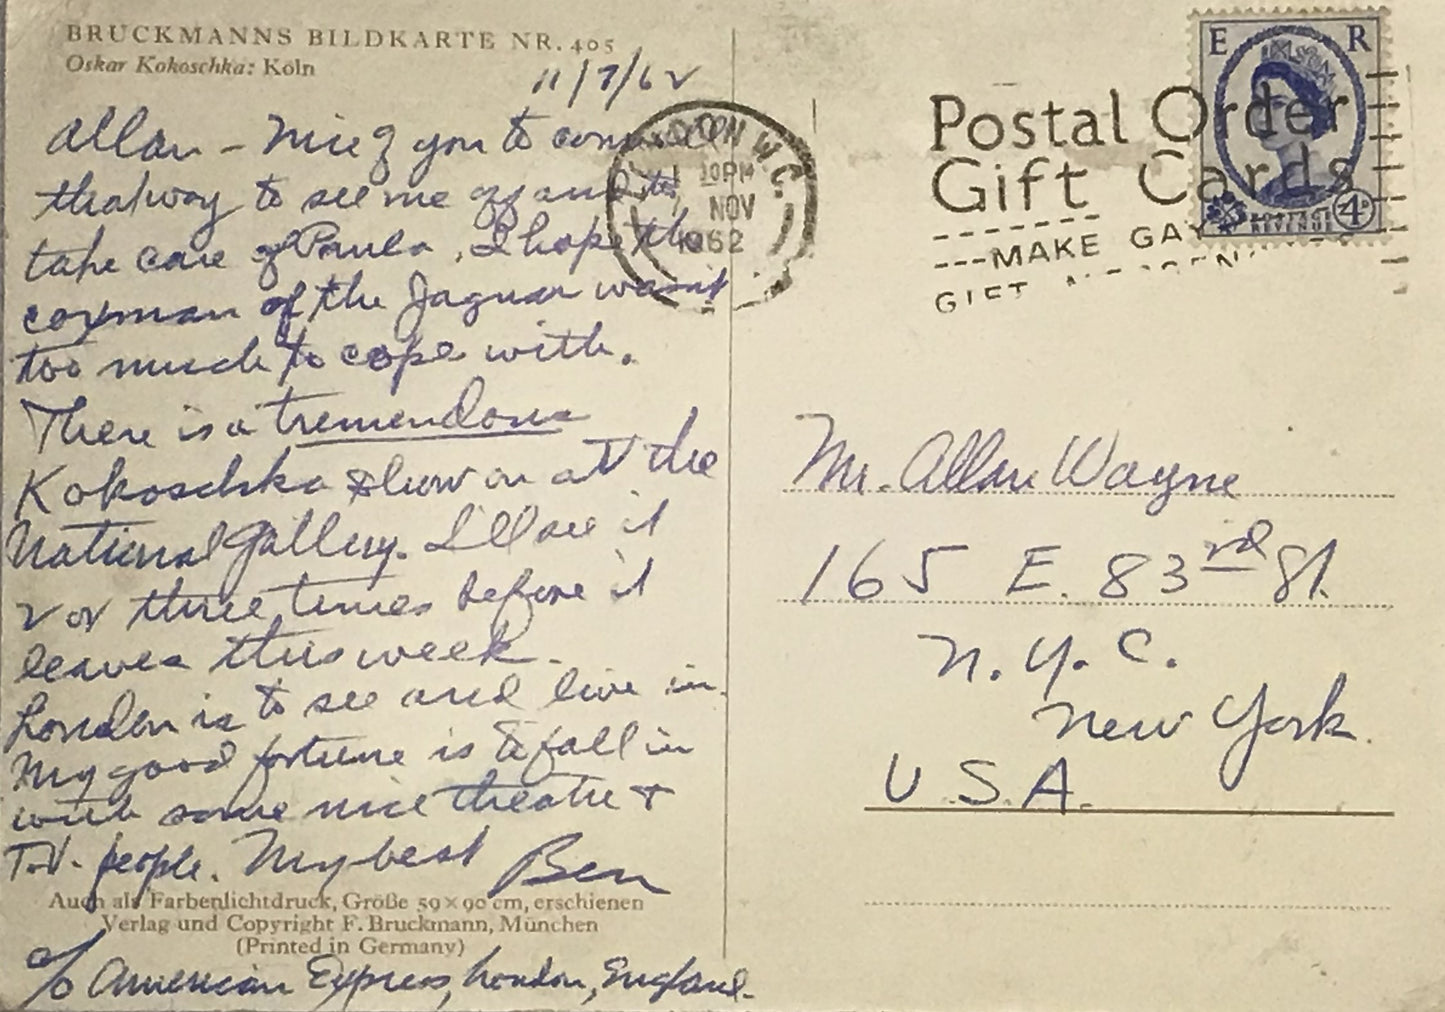 BRUCKMANNS BILDKARTE NR. 405
Oskar Kokoschka: Köln
11/7/62
Allan – Nice of you to come all
that way to see me off and to
take care of Paula, I hope the
of the Jaguar wasn't
too much to cope with.
There is a tremendous
Kokoschka show on at the
National Gallery. I'll see it
2 or three times before it
leaves this week.
London is to see and live in.
My good fortune is to fall in
with some nice theatre +
T.V. people. My best Ben
Auch als Farbenlichtdruck, Größe 59×90 cm, erschienen
Verlag und Copyright F. Bruckmann, München
(Printed in Germany)
c/o American Express, London, England.
LONDON W.C.
PM
NOV
1962
Postal Order
Gift Cards
---MAKE GAY
GIFT
E R
POSTAGE
REVENUE
4D
Mr. Allan Wayne
165 E. 83rd St.
N.Y.C.
New York
U.S.A.